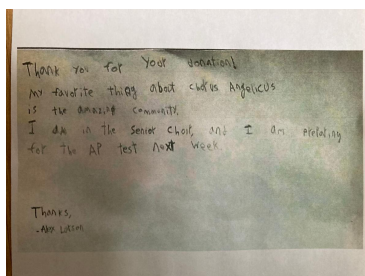 Thank you for your donation!
My favorite thing about chorus Angelicus
is the amazing community.
I am in the Senior choir, and I am preparing
for the AP test next week
Thanks,